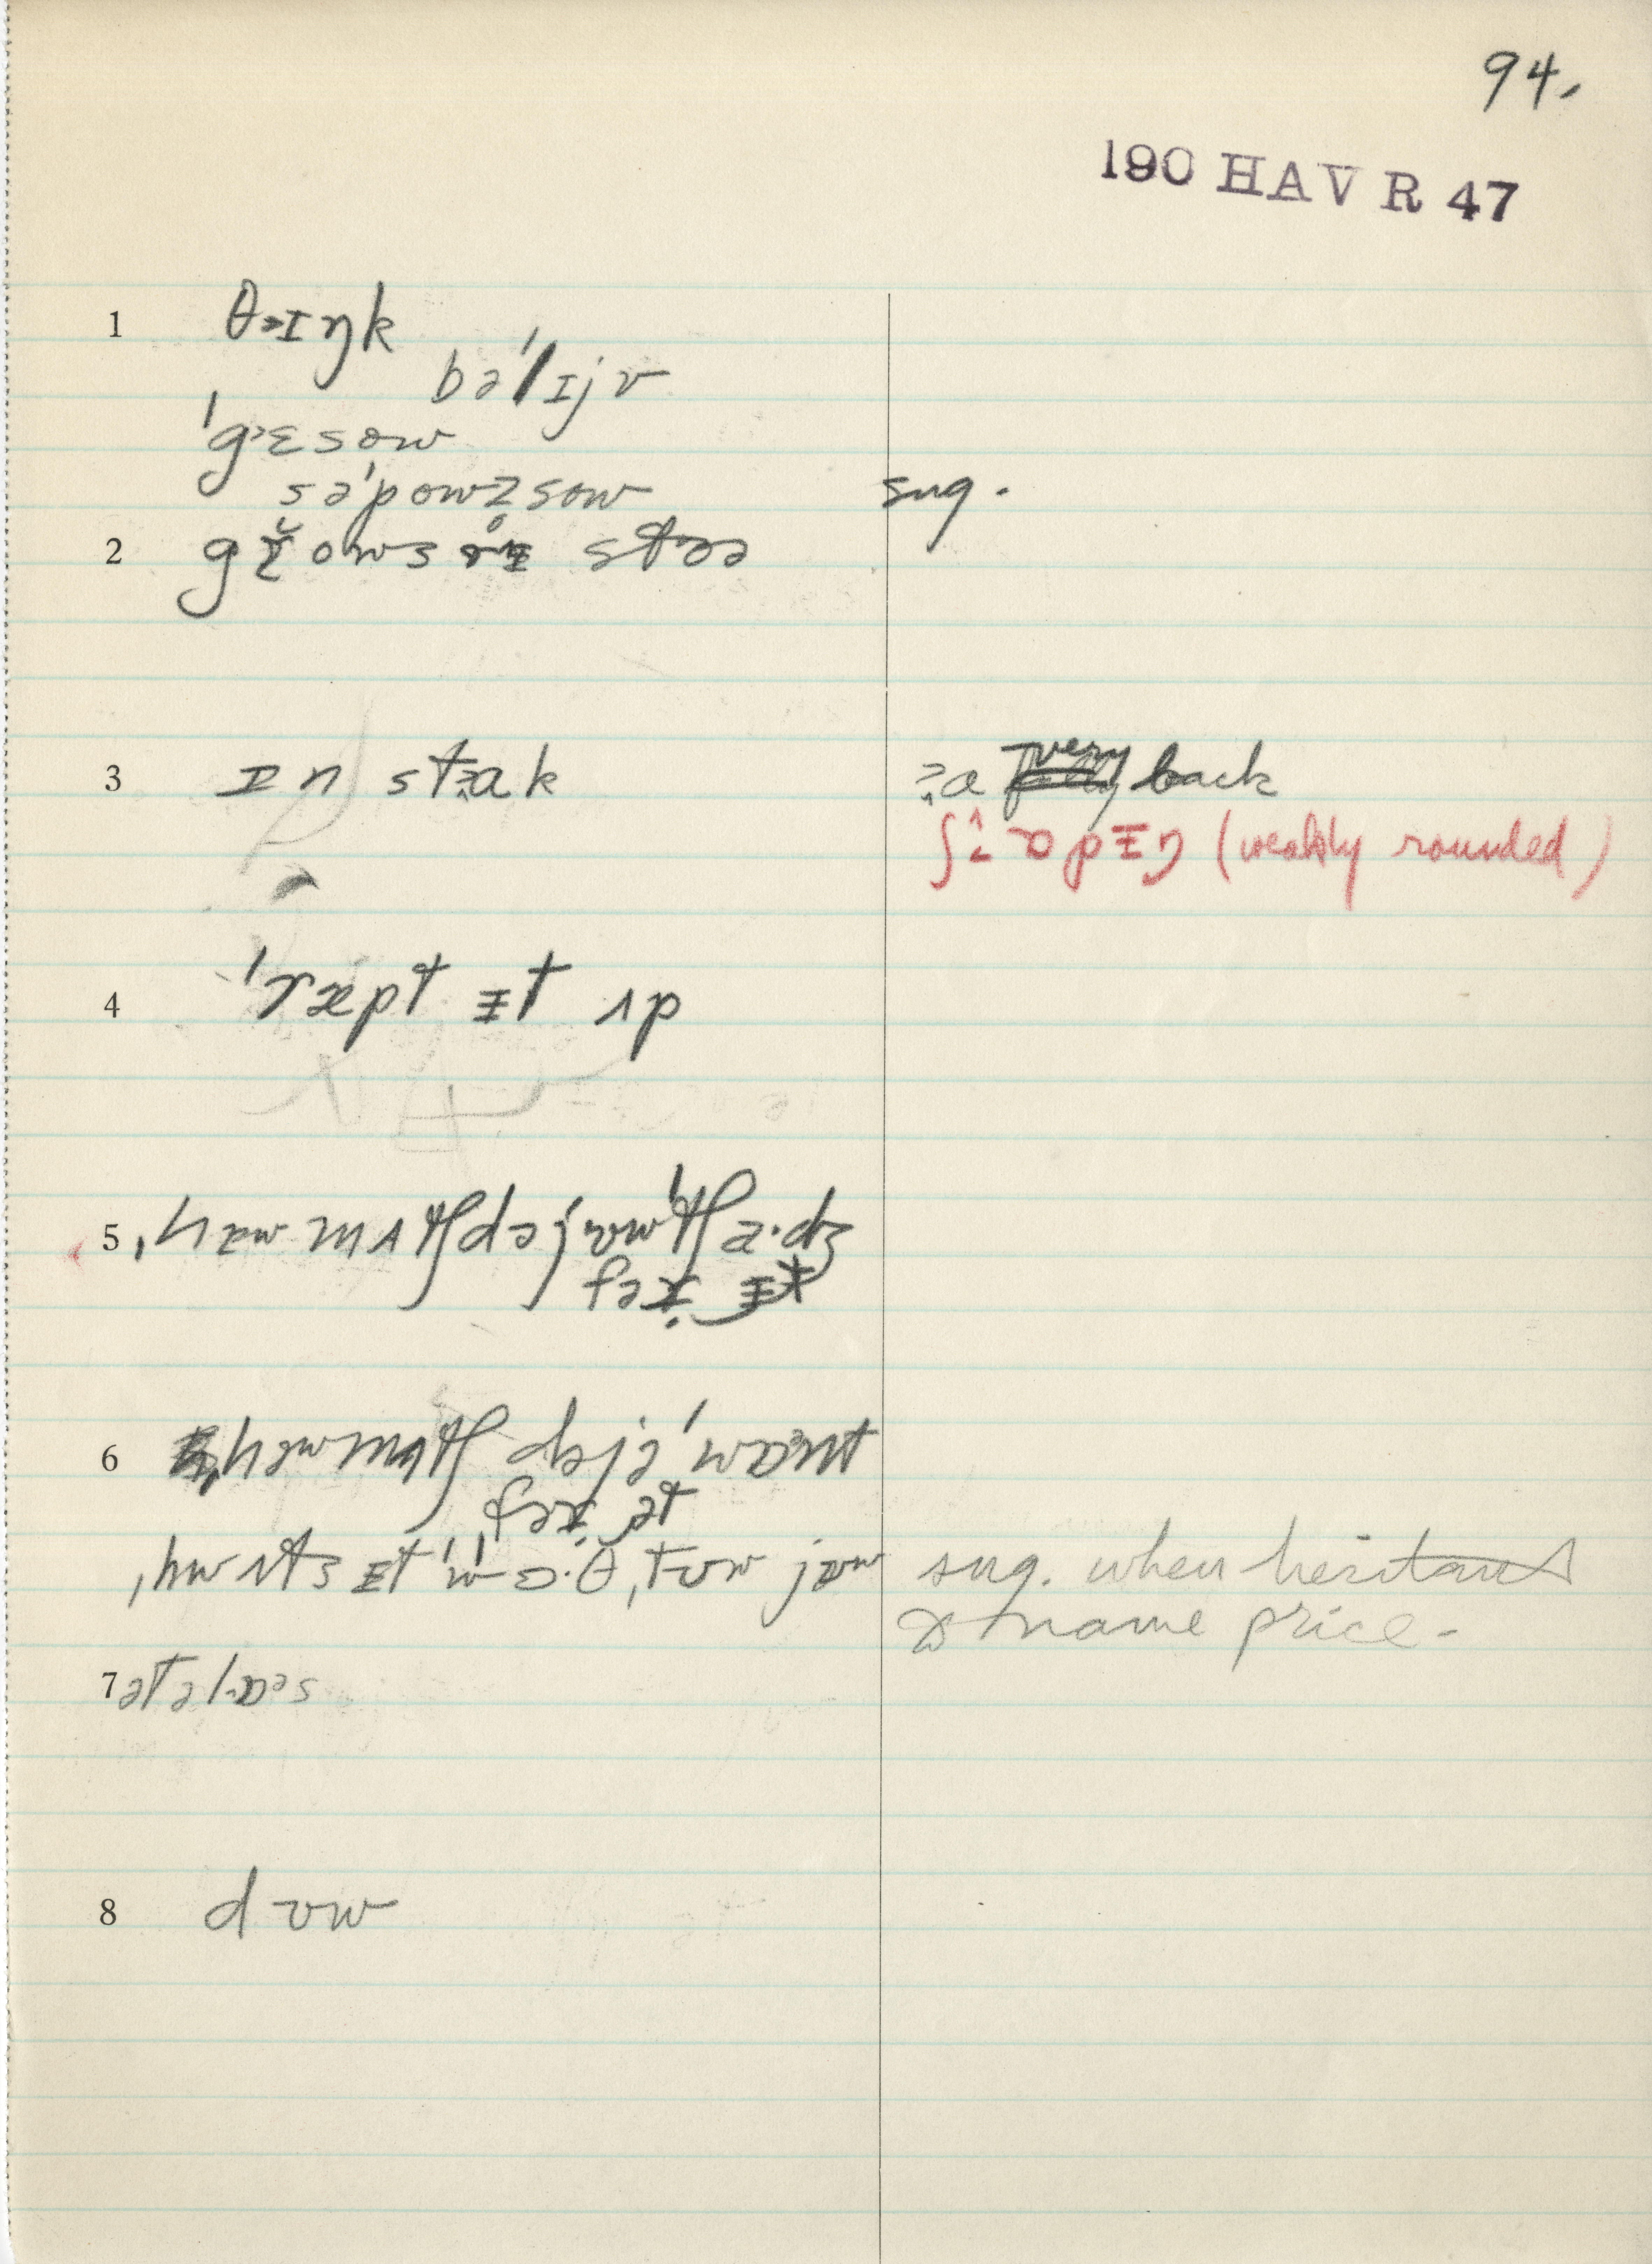 94.
190 HAV R 47
1 θɪŋk
bə'lɪjv
'gɛsow
sə'powzsow sug.
2 stɔə
3 ɪn stɑk ɑ very back
ʃɒpɪŋ (weakly rounded)
4 'ræpt ɨt ʌp
5 ˌhæw mʌtʃ dəjʊw'tʃa·dʒ
fəɹ ɨt
6 hæwmʌtʃ dəjə'wɒnt
fəɹ ət
ˌhwʌts ɨt 'wɔ·θ ˌtʊw jʊw sug. when hesitant
to name price.
7 ət ə lɒəs
8 dʊw